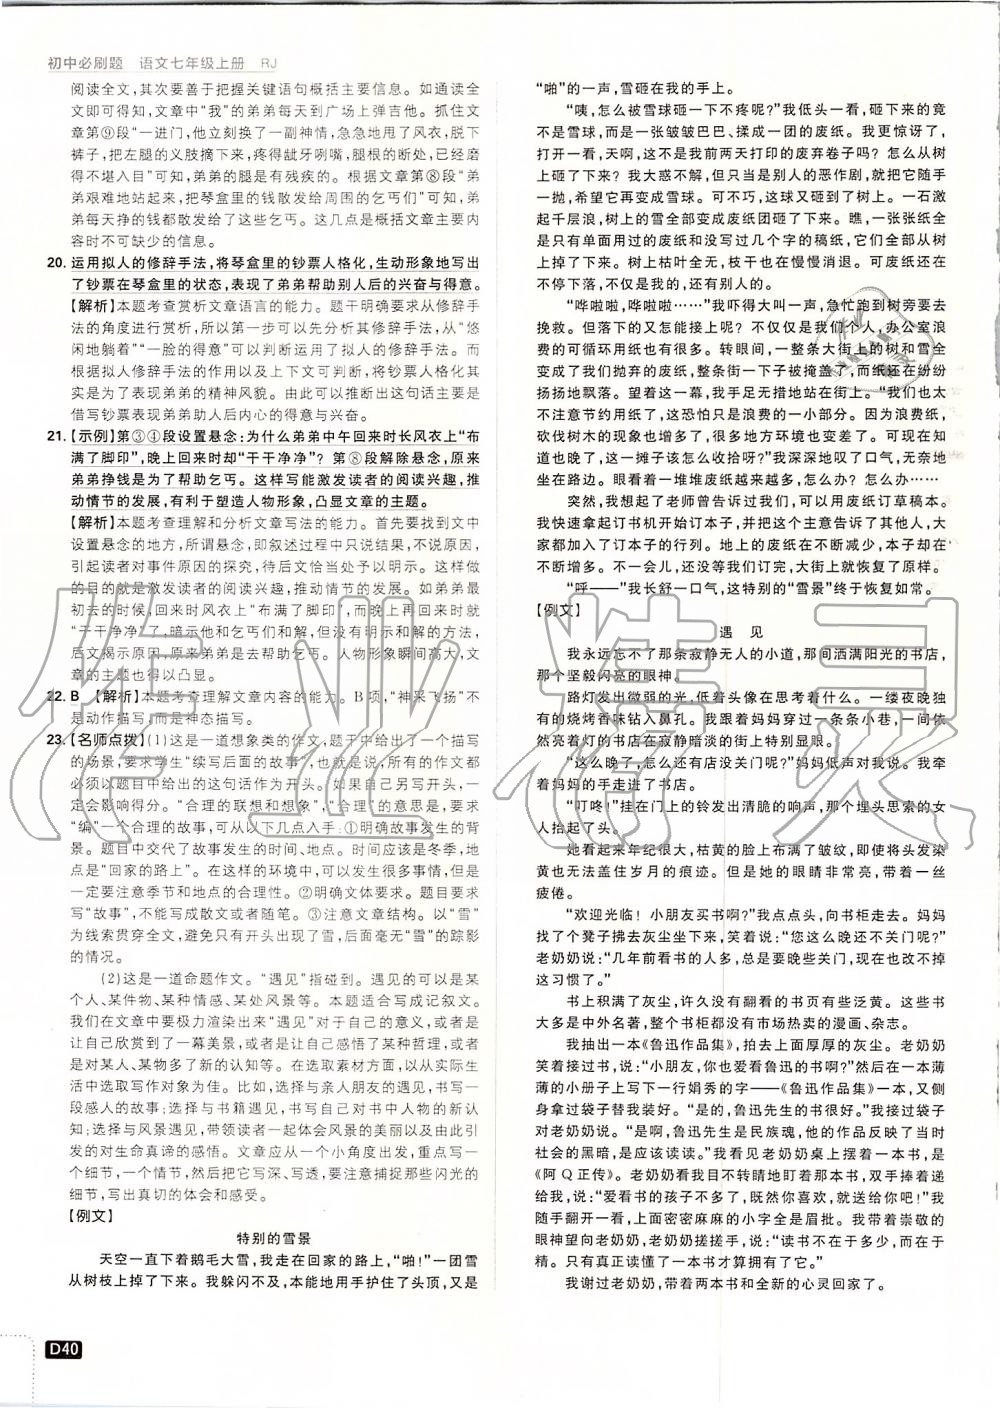 初中必刷题　语文七年级上册　RJ
阅读全文,其次要善于把握关键语句概括主要信息。如通读全
文即可得知,文章中“我”的弟弟每天到广场上弹吉他。抓住文
章第⑨段“一进门,他立刻换了一副神情,急急地甩了风衣,脱下
裤子,把左腿的义肢摘下来,疼得龇牙咧嘴,腿根的断处,已经磨
得不堪入目”可知,弟弟的腿是有残疾的。根据文章第⑧段“弟
弟艰难地站起来,把琴盒里的钱散发给周围的乞丐们”可知,弟
弟每天挣的钱都散发给了这些乞丐。这几点是概括文章主要内
容时不可缺少的信息。
20. 运用拟人的修辞手法,将琴盒里的钞票人格化,生动形象地写出
了钞票在琴盒里的状态,表现了弟弟帮助别人后的兴奋与得意。
【解析】本题考查赏析文章语言的能力。题干明确要求从修辞手
法的角度进行赏析,所以第一步可以先分析其修辞手法,从“悠
闲地躺着”“一脸的得意”可以判断运用了拟人的修辞手法。而
根据拟人修辞手法的作用以及上下文可判断,将钞票人格化其
实是为了表现弟弟的精神风貌。由此可以推断出这句话主要是
借写钞票表现弟弟助人后内心的得意与兴奋。
21. 【示例】第③④段设置悬念:为什么弟弟中午回来时长风衣上“布
满了脚印”,晚上回来时却“干干净净”？第⑧段解除悬念,原来
弟弟挣钱是为了帮助乞丐。这样写能激发读者的阅读兴趣,推
动情节的发展,有利于塑造人物形象,凸显文章的主题。
【解析】本题考查理解和分析文章写法的能力。首先要找到文中
设置悬念的地方,所谓悬念,即叙述过程中只说结果,不说原因,
引起读者对事件原因的探究,待后文恰当处予以明示。这样做
的目的就是激发读者的阅读兴趣,推动情节的发展。如弟弟最
初去的时候,回来时风衣上“布满了脚印”,而晚上再来回来时就
“干干净净”了,暗示他和乞丐们和解,但没有明示和解的方法,
后文揭示原因,原来弟弟是去帮助乞丐。人物形象瞬间高大,文
章的主题也得以凸显。
22. B　【解析】本题考查理解文章内容的能力。B项,“神采飞扬”不
是动作描写,而是神态描写。
23. 【名师点拨】(1)这是一道想象类的作文,题干中给出了一个描写
的场景,要求考生“续写后面的故事”,也就是说,所有的作文都
必须以题目中给出的这句话作为开头。如果自己另写开头,一
定会影响得分。“合理的联想和想象”,“合理”的意思是,要求
“编”一个合理的故事,可从以下几点入手:①明确故事发生的背
景。题目中交代了故事发生的时间、地点。时间应该是冬季,地
点是“回家的路上”。在这样的环境中,可以发生很多事情,但是
一定要注意季节和地点的合理性。②明确文体要求。题目要求
写“故事”,不能写成散文或者随笔。③注意文章结构。以“雪”
为线索贯穿全文,避免只有开头出现了雪,后面毫无“雪”的踪影
的情况。
(2)这是一道命题作文。“遇见”指碰到。遇见的可以是某
个人、某件物、某种情感、某处风景等。本题适合写成记叙文。
我们在文章中要极力渲染出来“遇见”对于自己的意义,或者是
让自己欣赏到了一幕美景,或者是让自己感悟了某种哲理,或者
是对某人、某物多了新的认知等。在选取素材方面,以从实际生
活中选取写作对象为佳。比如,选择与亲人朋友的遇见,书写一
段感人的故事;选择与书籍遇见,书写自己对书中人物的新认
知;选择与风景遇见,带领读者一起体会风景的美丽以及由此引
发的对生命真谛的感悟。文章应从一个小角度出发,重点写一
个细节,一个情节,然后把它写深、写透,要注意捕捉那些闪光的
细节,写出真切的体会和感受。
【例文】
特别的雪景
天空一直下着鹅毛大雪,我走在回家的路上,“啪!”一团雪
从树枝上掉了下来。我躲闪不及,本能地用手护住了头顶,又是
“啪”的一声,雪砸在我的手上。
“咦,怎么被雪球砸一下不疼呢?”我低头一看,砸下来的竟
不是雪球,而是一张皱皱巴巴、揉成一团的废纸。我更惊讶了,
打开一看,天啊,这不是我前两天打印的废弃卷子吗？怎么从树
上砸了下来？我大惑不解,但只当是别人的恶作剧,就把它随手
一抛,希望它再变成雪球。可不巧,这球又砸到了树上。一石激
起千层浪,树上的雪全部变成废纸团砸了下来。瞧,一张张纸全
是只有单面用过的废纸和没写过几个字的稿纸,它们全部从树
上掉了下来。树上枯叶全无,枝干也在慢慢消退。可废纸还在
不停下落,不仅是我的,还有别人的。
“哗啦啦,哗啦啦……”我吓得大叫一声,急忙跑到树旁要去
挽救。但落下的又怎能接上呢？不仅仅是我们,办公室浪
费的可循环用纸也有很多。转眼间,一整条大街上的树和雪全
变成了我们抛弃的废纸,整条街一下子被掩盖了,而纸还在纷纷
扬扬地飘落。望着这一幕,我手足无措地站在街上。“我们大家
不注意节约用纸了,这恐怕只是浪费的一小部分。因为浪费纸,
砍伐树木的现象也增多了,很多地方环境也变差了。可现在如
何是好,这一摊子该怎么收拾呀?”我深深地叹了口气,无奈地
坐在路边。眼看着一堆堆废纸越来越多,怎么办？怎么办……
突然,我想起了老师曾告诉过我们,可以用废纸订草稿本。
我快速拿起订书机开始订本子,并把这个主意告诉了其他人,大
家都加入了订本子的行列。地上的废纸在不断减少,本子却在
不断增多。不一会儿,还没等我们订完,大街上就恢复了原样。
“呼——”我长舒一口气,这特别的“雪景”终于恢复如常。
【例文】
遇　见
我永远忘不了那条寂静无人的小道,那间洒满阳光的书店,
那个坚毅闪亮的眼神。
路灯发出微弱的光,低着头像在思考着什么。一缕夜晚独
有的烧烤香味钻入鼻孔。我跟着妈妈穿过一条条小巷,一间依
然亮着灯的书店在寂静暗淡的街上特别显眼。
“这么晚了,怎么还有店没关门呢?”妈妈低声对我说。我牵
着妈妈的手走进了书店。
“叮咚!”挂在门上的铃发出清脆的响声,那个埋头思索的女
人抬起了头。
她看起来年纪很大,枯黄的脸上布满了皱纹,即使将头发染
黄也无法盖住岁月的痕迹。但是她的眼睛非常亮,带着一丝
疲倦。
“欢迎光临！小朋友买书啊?”我点点头,向书柜走去。妈妈
找了个凳子拂去灰尘坐下来,笑着说:“您这么晚还不关门呢?”
老奶奶说:“几年前看书的人多,总是要晚些关门,现在也改不掉
这习惯了。”
书上积满了灰尘,许久没有翻看的书页有些泛黄。这些书
大多是中外名著,整个书柜都没有市场热卖的漫画、杂志。
我抽出一本《鲁迅作品集》,拍去上面厚厚的灰尘。老奶奶
笑着接过书,说:“小朋友,你也爱看鲁迅的书啊?”然后在一本薄
薄的小册子上写下一行娟秀的字——《鲁迅作品集》一本,又侧
身拿过袋子替我装好。“是的,鲁迅先生的书很好。”我接过袋子
对老奶奶说。“是啊,鲁迅先生是民族魂,他的作品反映了当时
社会的黑暗,是应该读读。”我看见老奶奶桌上摆着一本书,是
《阿Q正传》。老奶奶看我目不转睛地盯着那本书,双手捧着递
给我,说:“爱看书的孩子不多了,既然你喜欢,就送给你吧!”我
随手翻开一看,上面密密麻麻的小字全是眉批。我带着崇敬的
眼神望向老奶奶,老奶奶搓搓手,说:“读书不在于多少,而在于
精。只有真正读懂了一本书才算拥有了它。”
我谢过老奶奶,带着两本书和全新的心灵回家了。
D40
作业精灵